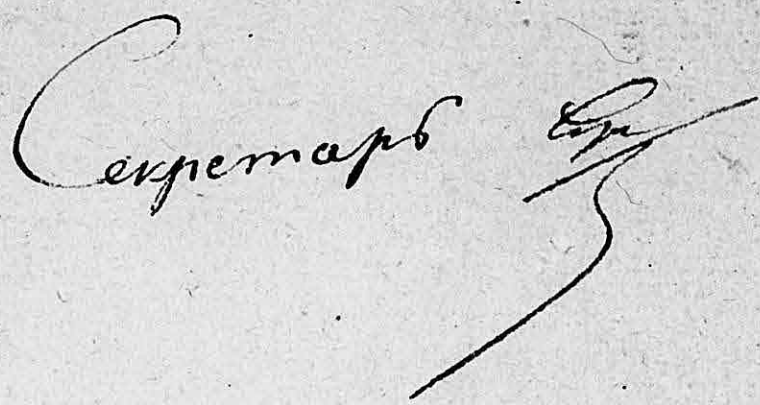 Секретарь